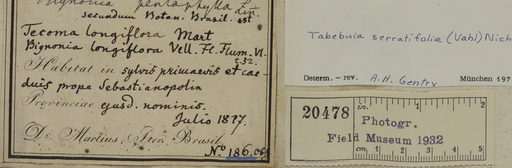 Bignonia pentaphylla Lin.
secundum Botan. Brasil. est
Tecoma longiflora Mart
Bignonia longiflora Vell. Fl. Flum. VI.
t. 52.
Habitat in sylvis primaevis et cae-
duis prope Sebastianopolin
Provinciae ejusd. nominis.
Julio 1817.
Dr. Martius, Iter Brasil.
No 186.
Tabebuia serratifolia (Vahl) Nich
Determ. – rev. A.H. Gentry München 197
20478
in. 1 2
Photogr.
Field Museum 1932
cm 1 2 3 4 5